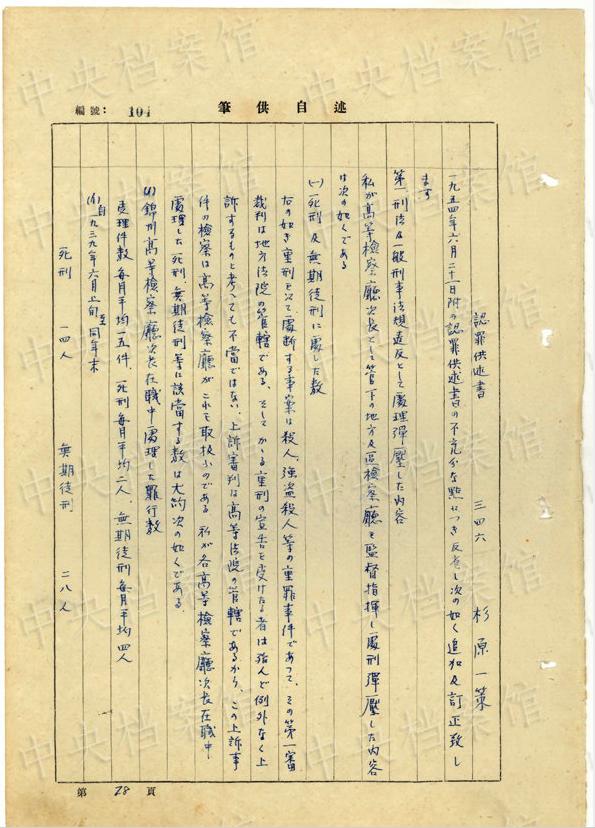 編號： 101
述自供筆
認罪供述書　三四六　杉原一策
一九五四年六月二十一日附の認罪供述書の不充分な點につき反省し次の如く追加及訂正致し
ます
第一、刑法及一般刑事法規違反として處理彈壓した内容
私が高等檢察廳次長として管下の地方及區檢察廳を監督指揮し處刑彈壓した内容
は次の如くである
(一)死刑及無期徒刑に處した數
右の如き重刑を以て處断する事案は殺人、強盗殺人等の重罪事件であって、その第一審
裁判は地方法院の管轄である、そしてかゝる重刑の宣告を受けたる者は殆んど例外なく上
訴するものと考へても不當ではない、上訴審判は高等法院の管轄であるから、この上訴事
件の檢察は高等檢察廳がこれを取扱ふのである　私が各高等檢察廳次長在職中
處理した死刑、無期徒刑等に該當する數は大約次の如くである
錦州高等檢察廳次長在職中處理した罪行數
受理件數毎月平均一五件、死刑毎月平均二人、無期徒刑毎月平均四人
自一九三九年六月上旬至同年末
死刑　一四人　無期徒刑　二八人
第 28 頁
中央档案馆